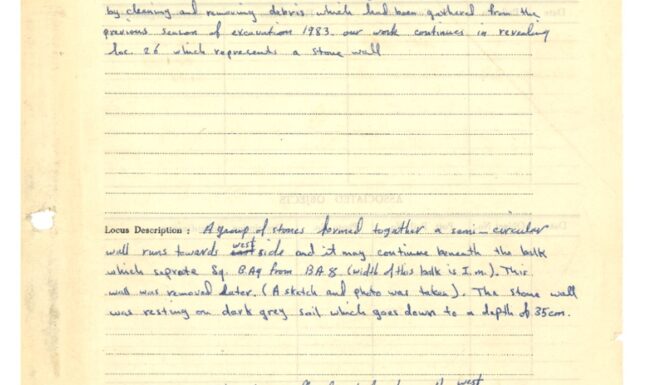 by cleaning and removing debris which had been gathered from the
previous season of excavation 1983. our work continues in revealing
loc. 26 which represents a stone wall
ASSOCIATED OBJECTS
Locus Description : A group of stones formed together a semi-circular
wall runs towards east west side and it may continue beneath the balk
which seprate Sq. BA9 from BA8 (width of this balk is 1m.). This
wall was removed later. (A sketch and photo was taken). The stone wall
was resting on dark grey soil which goes down to a depth of 35cm.
west